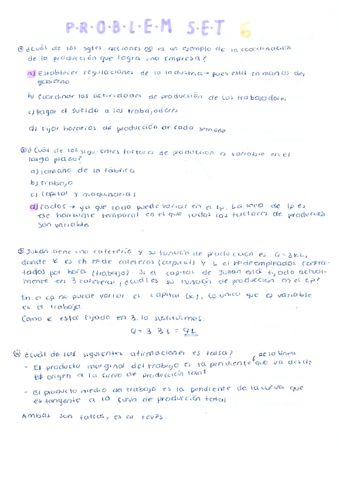 P·R·O·B·L·E·M S·E·T 6
① ¿Cuál de las sgtes acciones no es un ejemplo de la coordinación
de la producción que logra una empresa?
a) Establecer regulaciones de la industria → pues está en manos del
gobierno
b) coordinar las actividades de producción de sus trabajadores
c) Pagar el sueldo a los trabajadores
d) Fijar horarios de producción cada semana
② ¿Cuál de los siguientes factores de producción es variable en el
largo plazo?
a) tamaño de la fábrica
b) trabajo
c) capital y maquinarias
d) todos → ya que todo puede variar en el lp. La idea de lp es
ese horizonte temporal en el que todos los factores de producción
son variables
③ Julián tiene una cafetería y su función de producción es Q = 3KL,
donde K es el # de cafeteras (capital) y L el # de empleados contra-
tados por hora (trabajo). Si el capital de Julián está fijado actual-
mente en 3 cafeteras, ¿cuál es su función de producción en el CP?
En el cp no puede variar el capital (K), lo único que es variable
es el trabajo.
Como K está fijado en 3, lo sustituimos.
Q = 3·3L = 9L
④ ¿Cuál de las siguientes afirmaciones es falsa?
- El producto marginal del trabajo es la pendiente de la línea que va desde
el origen a la curva de producción total
- El producto medio del trabajo es la pendiente de la curva que
es tangente a la curva de producción total
Ambas son falsas, es al revés.